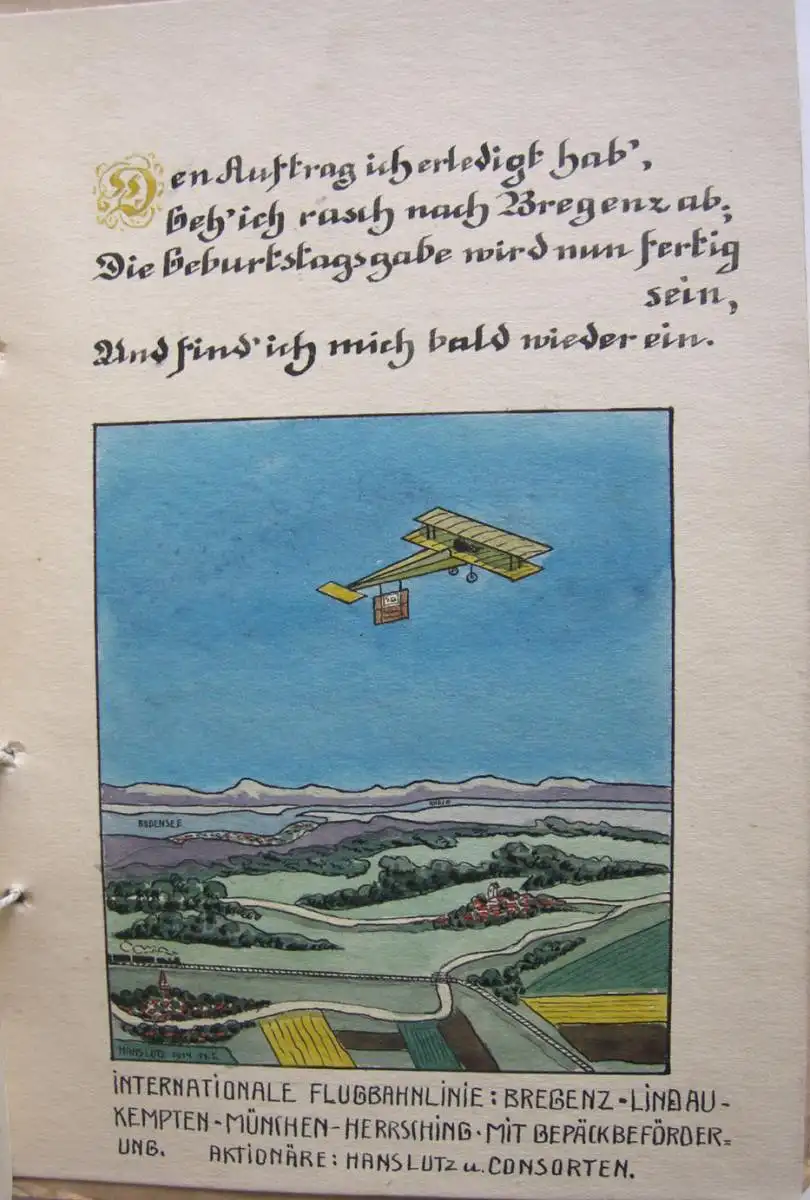 Den Auftrag ich erledigt hab',
Geh' ich rasch nach Bregenz ab;
Die Geburtstagsgabe wird nun fertig
sein,
Und find' ich mich bald wieder ein.
BODENSEE
HANS LUTZ 1914
INTERNATIONALE FLUGBAHNLINIE: BREGENZ-LINDAU-
KEMPTEN-MÜNCHEN-HERRSCHING. MIT GEPÄCKBEFÖRDER=
UNG. AKTIONÄRE: HANS LUTZ u. CONSORTEN.